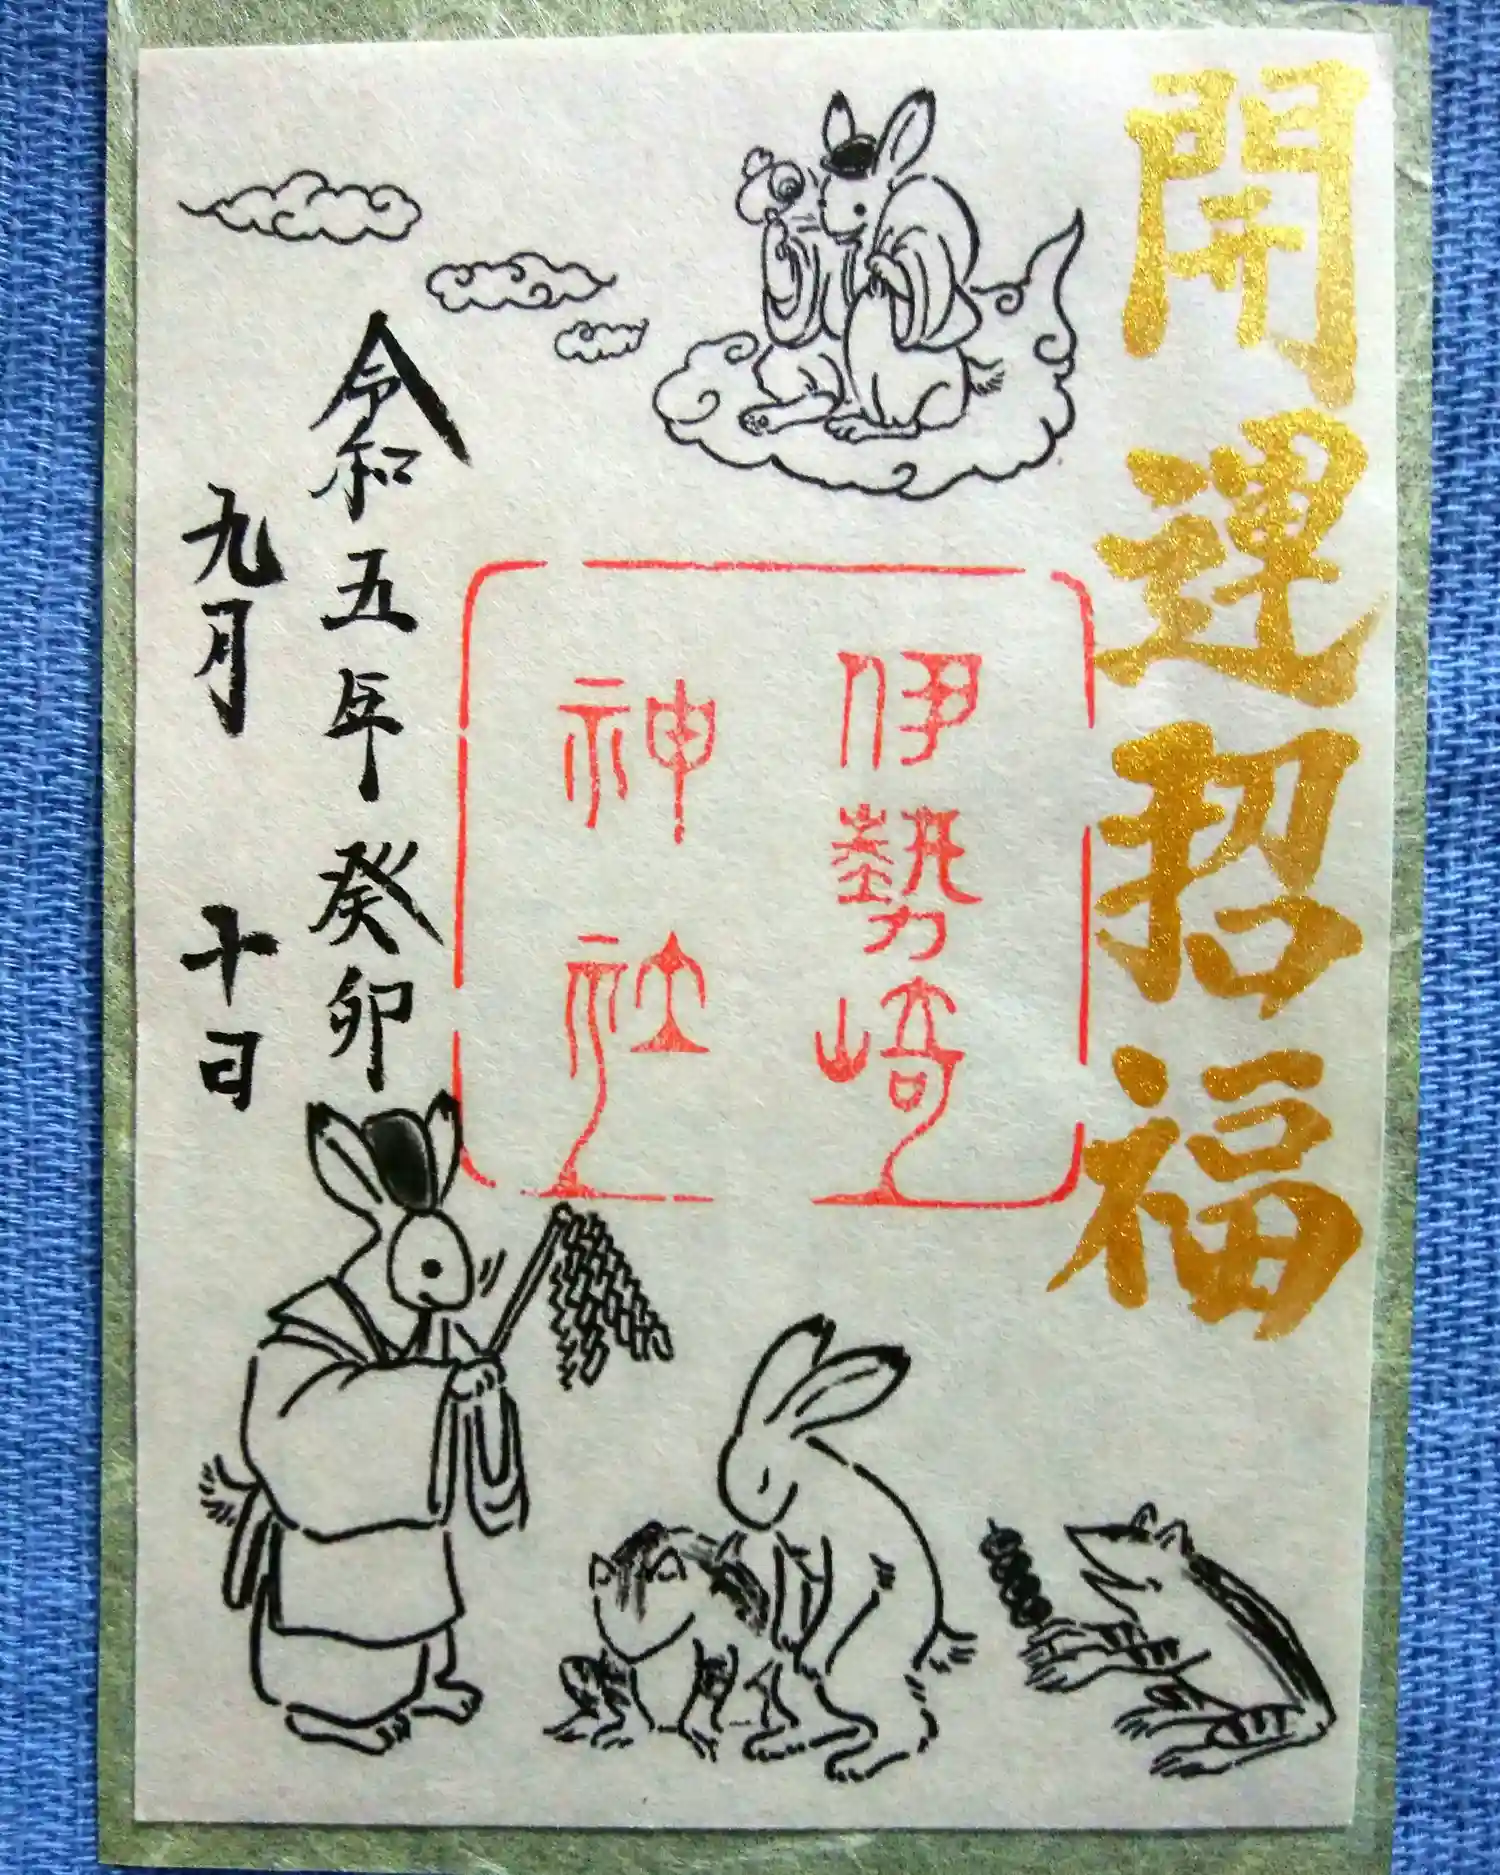 開運招福
伊勢崎
神社
令和五年癸卯
九月十日